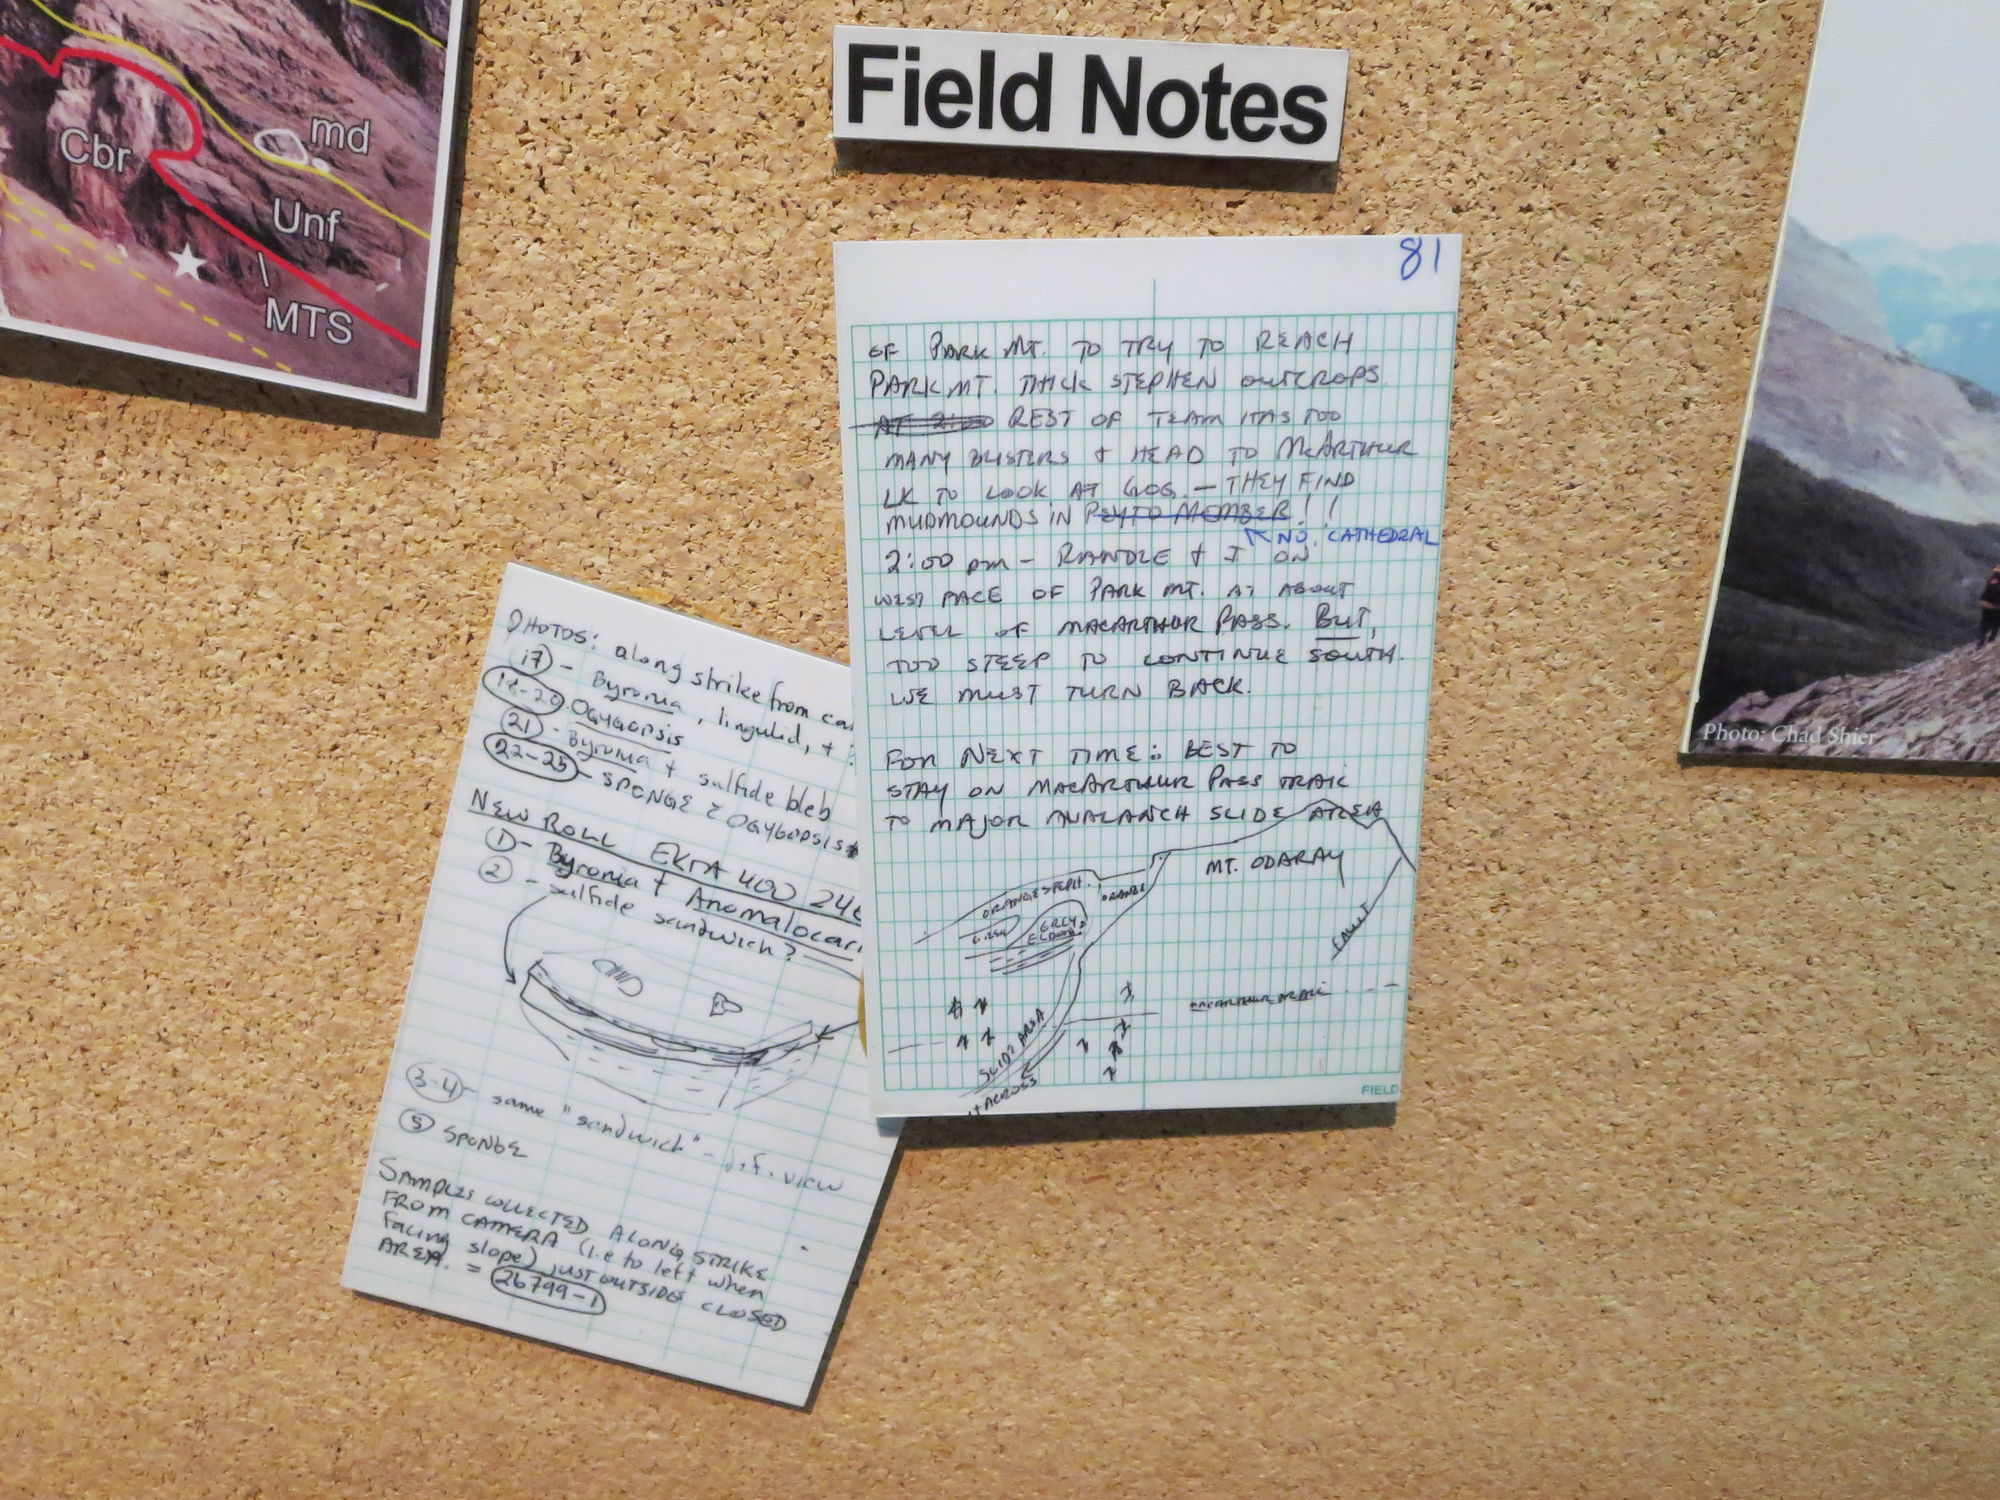 Field Notes
Cbr
md
Unf
MTS
81
OF PARK MT. TO TRY TO REACH
PARK MT. THICK STEPHEN OUTCROPS.
AT 2:00 REST OF TEAM HAS TOO
MANY BLISTERS + HEAD TO MCARTHUR
LK TO LOOK AT GOG. — THEY FIND
MUDMOUNDS IN PEYTO MEMBER!!
NO, CATHEDRAL
2:00 pm - RANDLE + I ON
WEST FACE OF PARK MT. AT ABOUT
LEVEL OF MACARTHUR PASS. BUT,
TOO STEEP TO CONTINUE SOUTH.
WE MUST TURN BACK.
FOR NEXT TIME: BEST TO
STAY ON MACARTHUR PASS TRAIL
TO MAJOR AVALANCH SLIDE AREA
MT. ODARAY
ORANGE STEPH.
ORANGE
GREY
GREY
ELDON
FAULT
MACARTHUR TRAIL
SLIDE AREA
ACROSS
FIELD
PHOTOS: along strike from
17 - Byronia, lingulid, +
18-20 OGYGOPSIS
21 - Byronia + sulfide bleb
22-25 - SPONGE & OGYGOPSIS
NEW ROLL EKTA 400 24
1 - Byronia + Anomalocari
2 - sulfide sandwich?
3-4 - same "sandwich" - view
5 SPONGE
SAMPLES COLLECTED ALONG STRIKE
FROM CAMERA (i.e to left when
facing slope) JUST OUTSIDE CLOSED
AREA. = 26799-1
Photo: Chad Shier